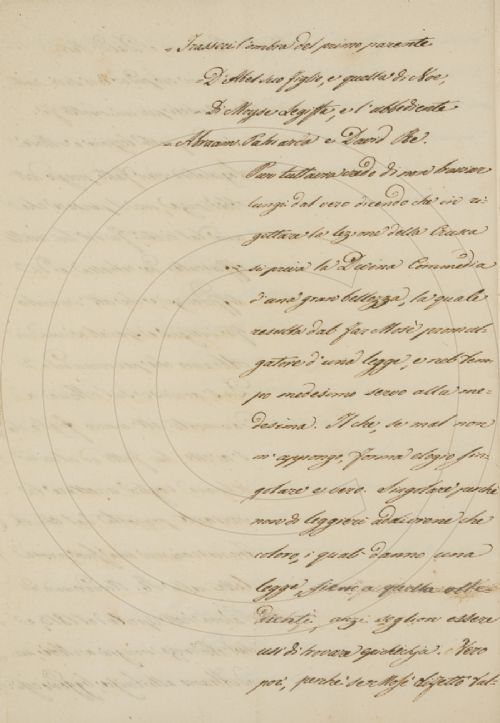 „ Trasseci l'ombra del primo parente
„ D'Abel suo figlio, e quella di Noe,
„ Di Moyse Legista, e l'ubbidiente
„ Abraam Patriarca e David Re.
Pur tuttavia credo di non
lungi dal vero dicendo che in ri-
gettare la lezione della Crusca
si priva la Divina Commedia
d'una gran bellezza, la quale
resulta dal far Mosè promul-
gatore d'una legge, e nel tem-
po medesimo servo alla me-
desima. Il che, se mal non
m'appongo, forma elogio sin-
golare e vero. Singolare perchè
non di leggieri addiviene che
coloro, i quali danno una
legge, sieno a quella obbe-
dienti, anzi soglion essere
usi di trovare
Vero
poi, perchè se Mosè difettò tal-